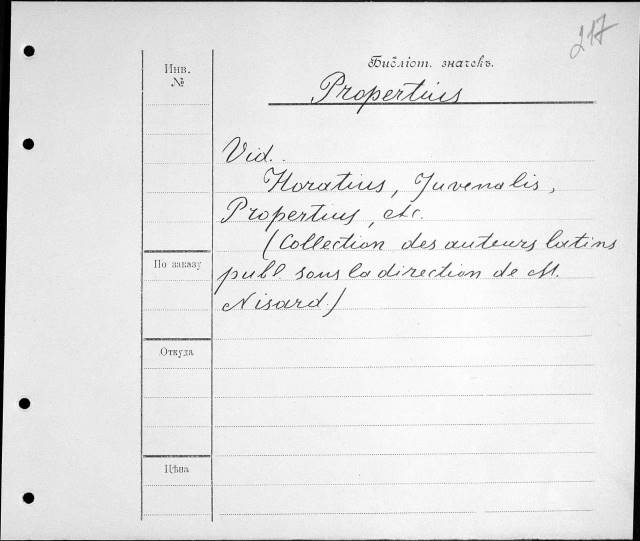 217
Библіот. значекъ.
Propertius
Инв.
№
Vid.
Horatius, Juvenalis,
Propertius, etc.
(Collection des auteurs latins
По заказу
publ. sous la direction de M.
Nisard.)
Откуда
Цѣна